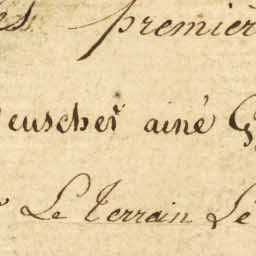 es premier
euscher ainé G
Le Terrain Le